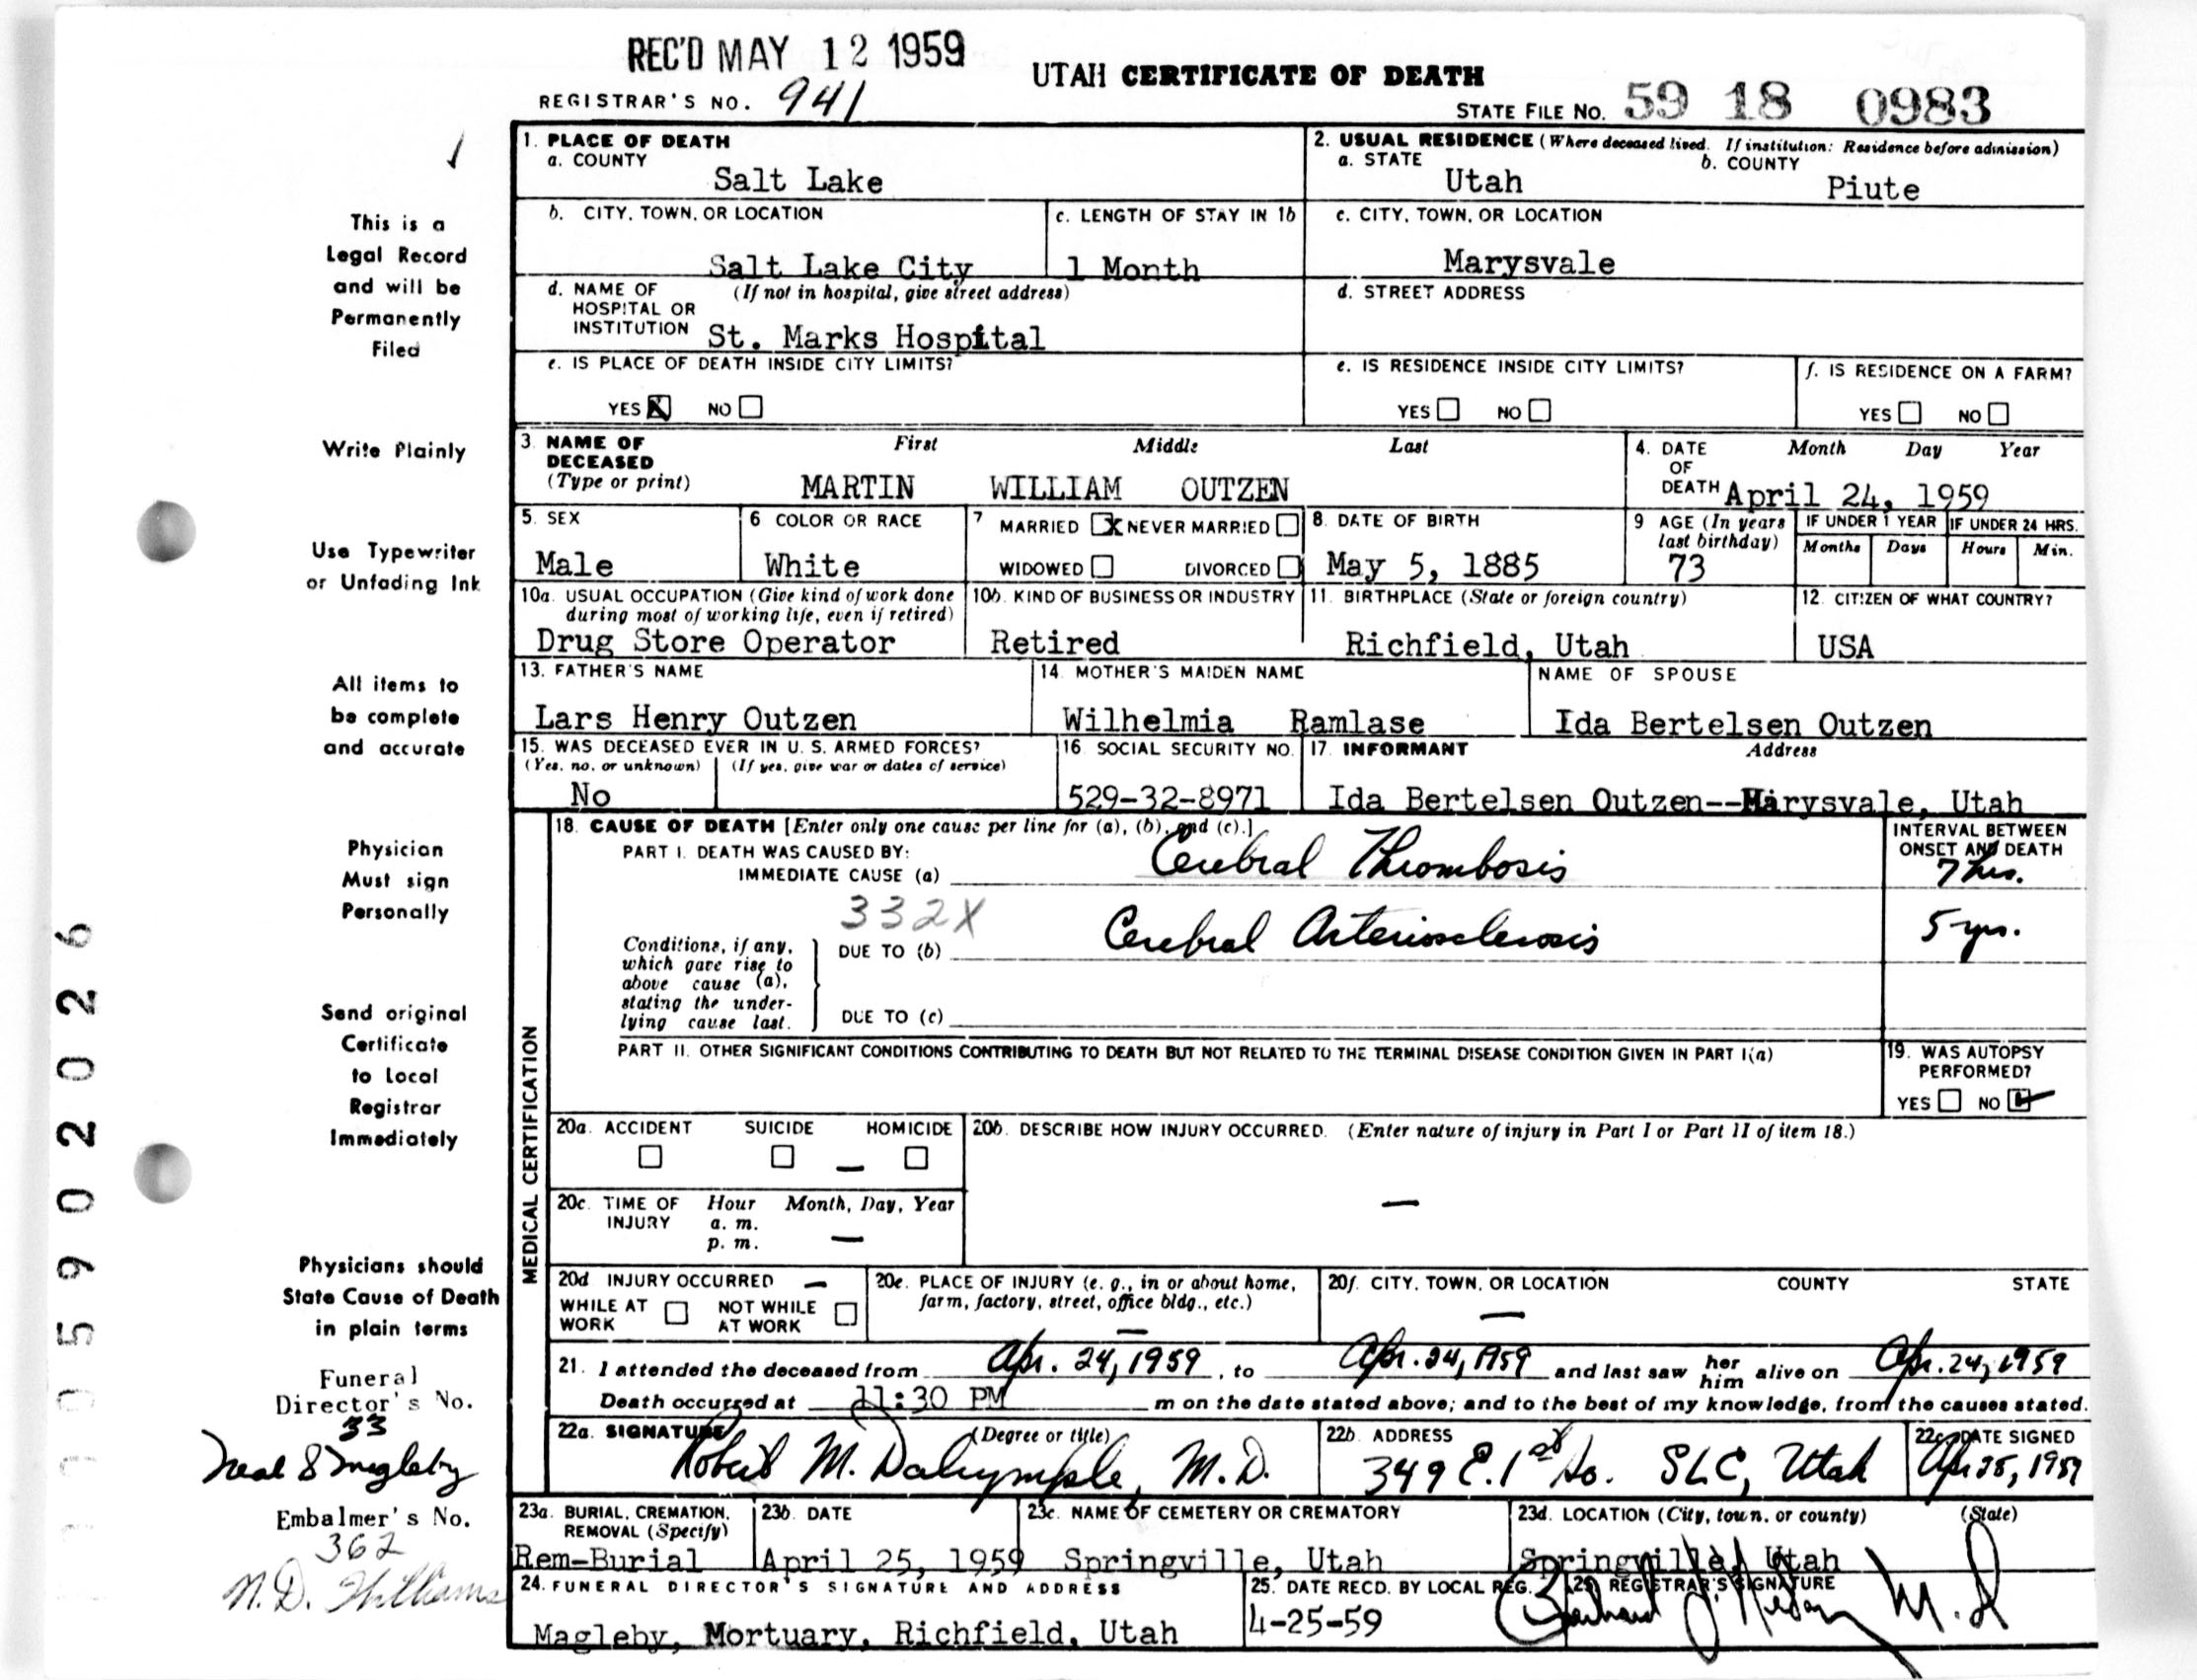 REC'D MAY 12 1959
UTAH CERTIFICATE OF DEATH
REGISTRAR'S NO. 941
STATE FILE NO. 59 18 0983
This is a
Legal Record
and will be
Permanently
Filed
Write Plainly
Use Typewriter
or Unfading Ink
All items to
be complete
and accurate
Physician
Must sign
Personally
Send original
Certificate
to Local
Registrar
Immediately
Physicians should
State Cause of Death
in plain terms
Funeral
Director's No.
33
Neal S Magleby
Embalmer's No.
362
N.D. Williams
1. PLACE OF DEATH
a. COUNTY
Salt Lake
2. USUAL RESIDENCE (Where deceased lived. If institution: Residence before admission)
a. STATE
Utah
b. COUNTY
Piute
b. CITY, TOWN, OR LOCATION
Salt Lake City
c. LENGTH OF STAY IN 1b
1 Month
c. CITY, TOWN, OR LOCATION
Marysvale
d. NAME OF HOSPITAL OR INSTITUTION (If not in hospital, give street address)
St. Marks Hospital
d. STREET ADDRESS
e. IS PLACE OF DEATH INSIDE CITY LIMITS?
YES X NO
e. IS RESIDENCE INSIDE CITY LIMITS?
YES NO
f. IS RESIDENCE ON A FARM?
YES NO
3. NAME OF DECEASED (Type or print)
First Middle Last
MARTIN WILLIAM OUTZEN
4. DATE OF DEATH
Month Day Year
April 24, 1959
5. SEX
Male
6 COLOR OR RACE
White
7 MARRIED X NEVER MARRIED
WIDOWED DIVORCED
8. DATE OF BIRTH
May 5, 1885
9 AGE (In years last birthday)
73
IF UNDER 1 YEAR
Months Days
IF UNDER 24 HRS.
Hours Min.
10a. USUAL OCCUPATION (Give kind of work done during most of working life, even if retired)
Drug Store Operator
10b. KIND OF BUSINESS OR INDUSTRY
Retired
11. BIRTHPLACE (State or foreign country)
Richfield, Utah
12. CITIZEN OF WHAT COUNTRY?
USA
13. FATHER'S NAME
Lars Henry Outzen
14. MOTHER'S MAIDEN NAME
Wilhelmia Ramlase
NAME OF SPOUSE
Ida Bertelsen Outzen
15. WAS DECEASED EVER IN U. S. ARMED FORCES?
(Yes, no, or unknown) (If yes, give war or dates of service)
No
16. SOCIAL SECURITY NO.
529-32-8971
17. INFORMANT Address
Ida Bertelsen Outzen--Marysvale, Utah
MEDICAL CERTIFICATION
18. CAUSE OF DEATH [Enter only one cause per line for (a), (b), and (c).]
PART I. DEATH WAS CAUSED BY:
IMMEDIATE CAUSE (a) Cerebral Thrombosis
INTERVAL BETWEEN ONSET AND DEATH
7 hrs.
332X
Conditions, if any, which gave rise to above cause (a), stating the underlying cause last.
DUE TO (b) Cerebral Arteriosclerosis
5 yrs.
DUE TO (c)
PART II. OTHER SIGNIFICANT CONDITIONS CONTRIBUTING TO DEATH BUT NOT RELATED TO THE TERMINAL DISEASE CONDITION GIVEN IN PART I(a)
19. WAS AUTOPSY PERFORMED?
YES NO ✓
20a. ACCIDENT SUICIDE HOMICIDE
—
20b. DESCRIBE HOW INJURY OCCURRED. (Enter nature of injury in Part I or Part II of item 18.)
—
20c. TIME OF INJURY Hour Month, Day, Year
a. m.
p. m. —
20d INJURY OCCURRED —
WHILE AT WORK NOT WHILE AT WORK
20e. PLACE OF INJURY (e. g., in or about home, farm, factory, street, office bldg., etc.)
—
20f. CITY, TOWN, OR LOCATION COUNTY STATE
—
21. I attended the deceased from Apr. 24, 1959, to Apr. 24, 1959 and last saw her him alive on Apr. 24, 1959
Death occurred at 11:30 PM m on the date stated above; and to the best of my knowledge, from the causes stated.
22a. SIGNATURE (Degree or title)
Robert M. Dalrymple, M.D.
22b. ADDRESS
349 E. 1st So. SLC, Utah
22c. DATE SIGNED
Apr 25, 1959
23a. BURIAL, CREMATION, REMOVAL (Specify)
Rem-Burial
23b. DATE
April 25, 1959
23c. NAME OF CEMETERY OR CREMATORY
Springville, Utah
23d. LOCATION (City, town, or county) (State)
Springville, Utah
24. FUNERAL DIRECTOR'S SIGNATURE AND ADDRESS
Magleby, Mortuary, Richfield, Utah
25. DATE RECD. BY LOCAL REG.
4-25-59
REGISTRAR'S SIGNATURE
M.D